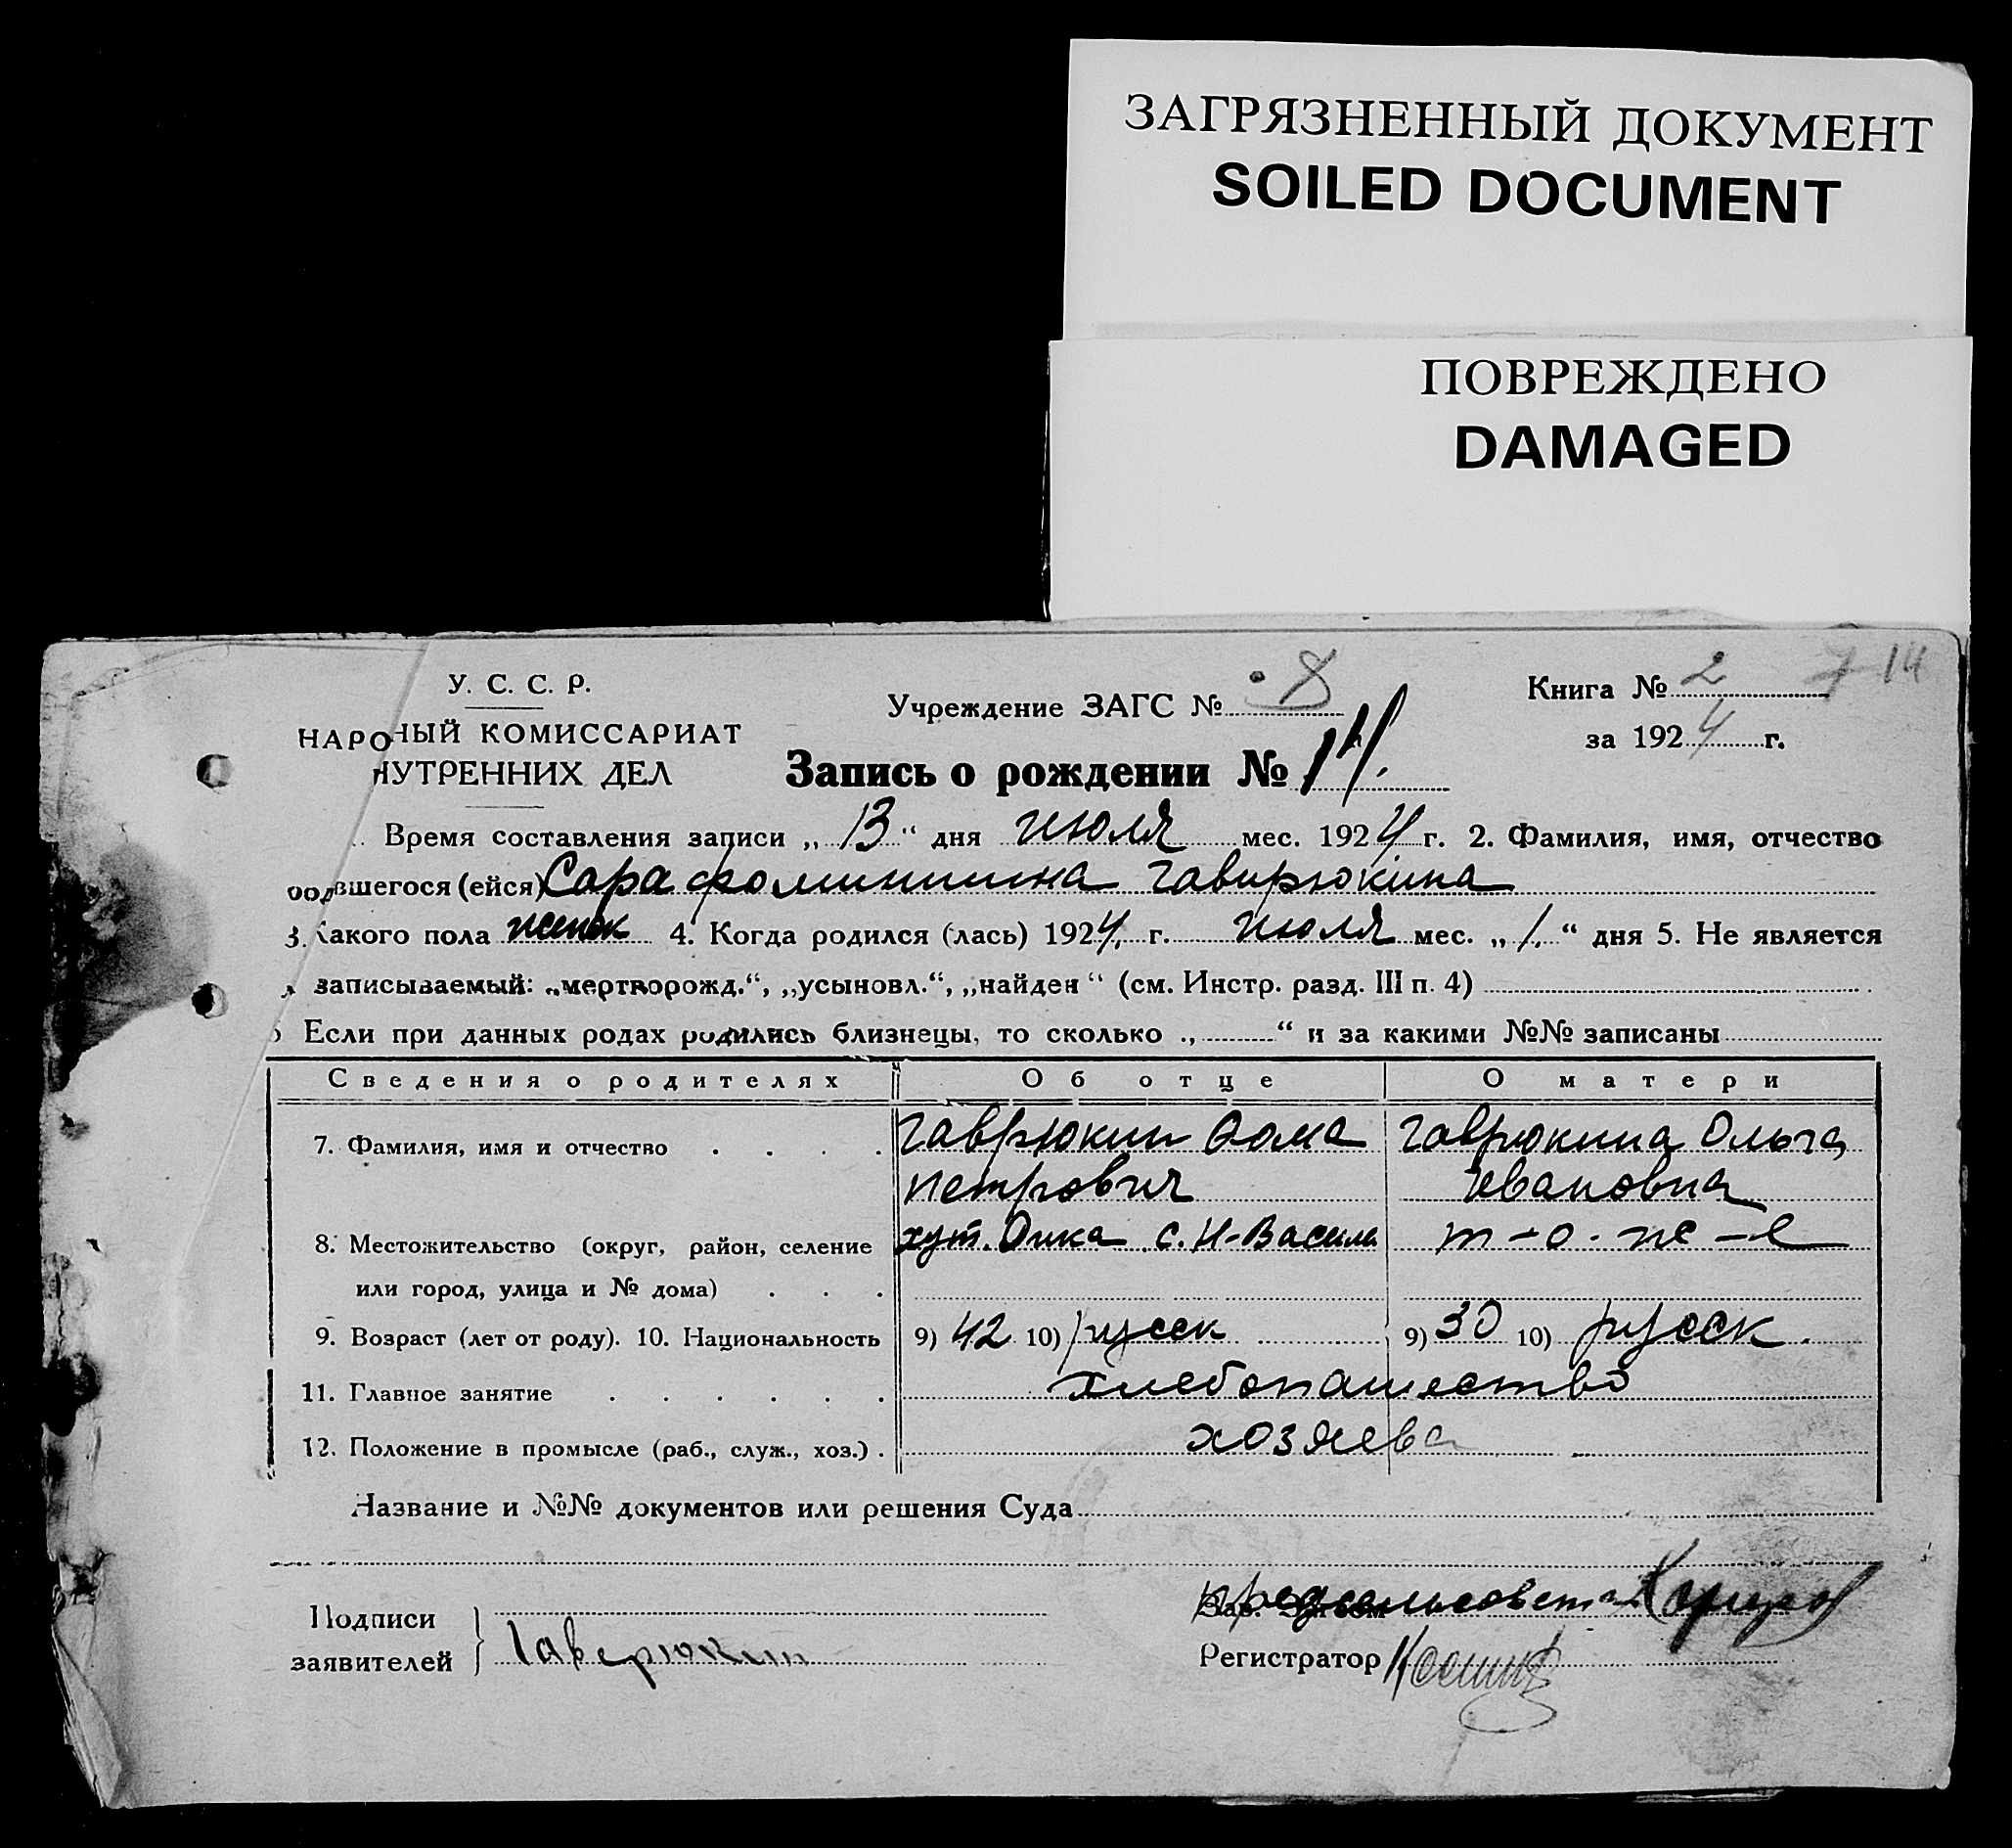 ЗАГРЯЗНЕННЫЙ ДОКУМЕНТ
SOILED DOCUMENT
ПОВРЕЖДЕНО
DAMAGED
У. С. С. Р.
НАРОДНЫЙ КОМИССАРИАТ
НУТРЕННИХ ДЕЛ
Учреждение ЗАГС № 8
Книга № 2 14
за 1924 г.
Запись о рождении № 14.
Время составления записи „13“ дня июля мес. 1924 г. 2. Фамилия, имя, отчество
родившегося (ейся) Сара фоминишна Гавирюкина
3. Какого пола женск 4. Когда родился (лась) 1924 г. июля мес. „1.“ дня 5. Не является
записываемый: „мертворожд.“, „усыновл.“, „найден“ (см. Инстр. разд. III п. 4)
Если при данных родах родились близнецы, то сколько „ “ и за какими №№ записаны
Сведения о родителях Об отце О матери
7. Фамилия, имя и отчество Гаврюкин Фома Гаврюкина Ольга
петрович Ивановна
8. Местожительство (округ, район, селение хут. с. Н-Васил т-о-же-е
или город, улица и № дома)
9. Возраст (лет от роду). 10. Национальность 9) 42 10) русск 9) 30 10) русск.
11. Главное занятие хлебопашество
12. Положение в промысле (раб., служ., хоз.) хозяева
Название и №№ документов или решения Суда
Подписи
заявителей Гаверюкин
Предсельсовета
Регистратор